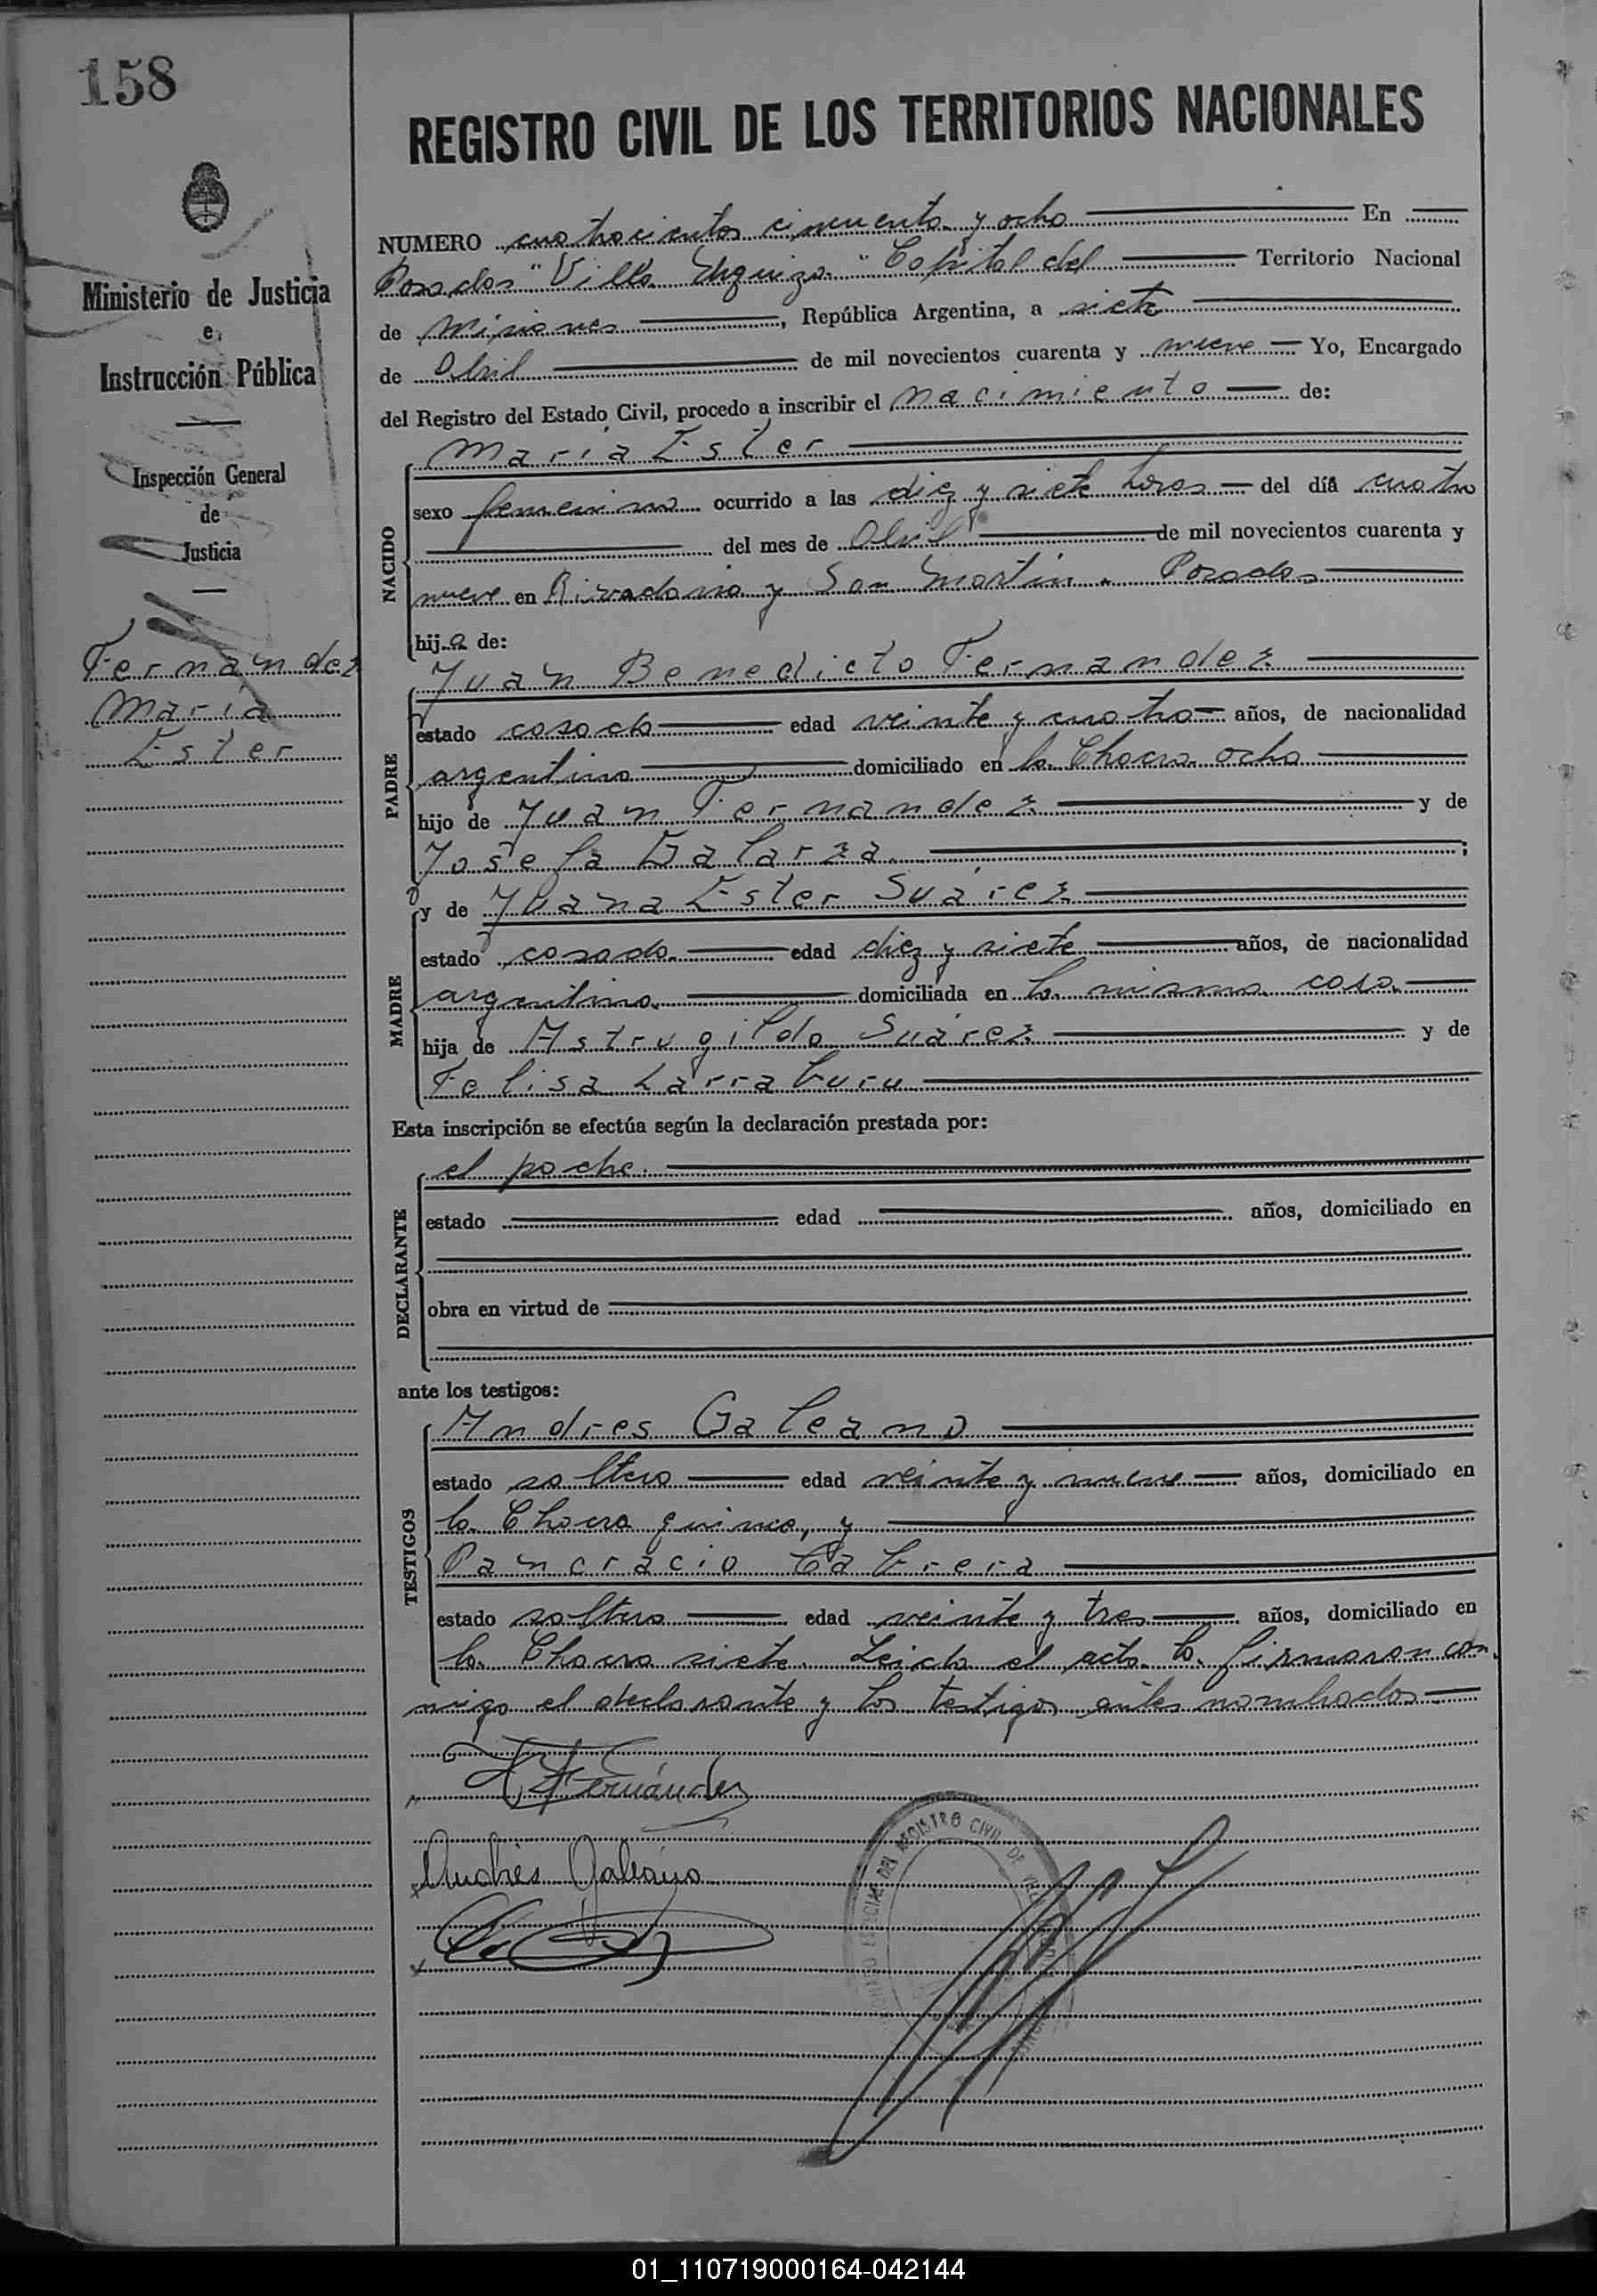 158
REGISTRO CIVIL DE LOS TERRITORIOS NACIONALES
Ministerio de Justicia
e
Instrucción Pública
Inspección General
de
Justicia
Fernández
María
Ester
NUMERO cuatrocientos cincuenta y ocho En
Posadas "Villa Urquiza" Capital del Territorio Nacional
de Misiones, República Argentina, a siete
de Abril de mil novecientos cuarenta y nueve Yo, Encargado
del Registro del Estado Civil, procedo a inscribir el nacimiento de:
NACIDO
María Ester
sexo femenino ocurrido a las diez y siete horas del día cuatro
del mes de Abril de mil novecientos cuarenta y
nueve en Rivadavia y San Martín. Posadas
hija de:
PADRE
Juan Benedicto Fernandez
estado casado edad veinte y cuatro años, de nacionalidad
argentino domiciliado en la Chacra ocho
hijo de Juan Fernandez y de
Josefa Galarza;
MADRE
y de Juana Ester Suárez
estado casada edad diez y siete años, de nacionalidad
argentina domiciliada en la misma casa
hija de Astrugildo Suárez y de
Felisa Larraburu
Esta inscripción se efectúa según la declaración prestada por:
DECLARANTE
el padre.
estado edad años, domiciliado en
obra en virtud de
ante los testigos:
TESTIGOS
Andres Galeano
estado soltero edad veinte y nueve años, domiciliado en
la Chacra quince, y
Pancracio Cabrera
estado soltero edad veinte y tres años, domiciliado en
la Chacra siete. Leida el acta la firmaron con
migo el declarante y los testigos antes nombrados
Fernández
Andrés Galeano
DEL REGISTRO CIVIL DE
01_110719000164-042144